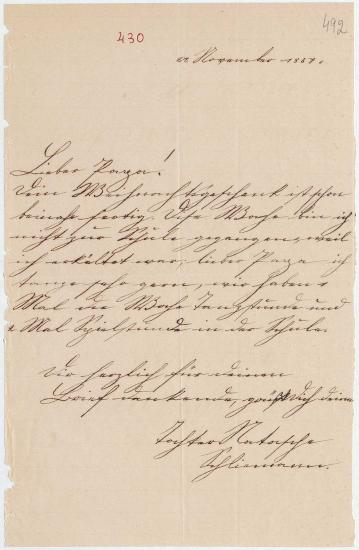 492
430
November 18
Lieber Papa!
Dein Weihnachtsgeschenk ist schon
beinahe fertig. Diese Woche bin ich
nicht zur Schule gegangen, weil
ich erkältet war; lieber Papa, ich
tanze sehr gern, wir haben
Mal die Woche Tanzstunde und
Mal Spielstunde in der Schule.
Dir herzlich für deinen
Brief dankend, grüßt Dich deine
Tochter Natasche
Schliemann.